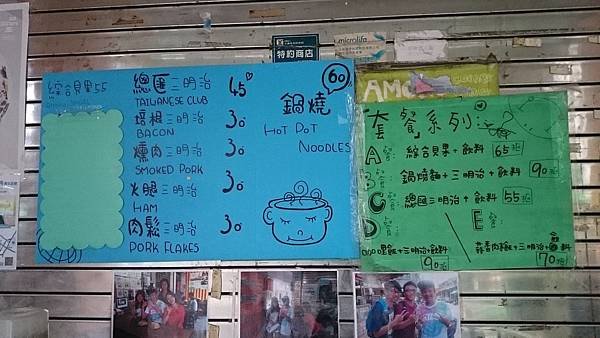 特約商店
microlife
綜合貝果55
總匯三明治 45
TAIWANESE CLUB
培根三明治 30
BACON
燻肉三明治 30
SMOKED PORK
火腿三明治 30
HAM
肉鬆三明治 30
PORK FLAKES
60
鍋燒
HOT POT
NOODLES
套餐系列:
A 套餐: 綜合貝果+飲料 65元
鍋燒麵+三明治+飲料 90元
C 套餐: 總匯三明治+飲料 55元
D E
+三明治+飲料
90元
蒜香肉糕+三明治+飲料
70元